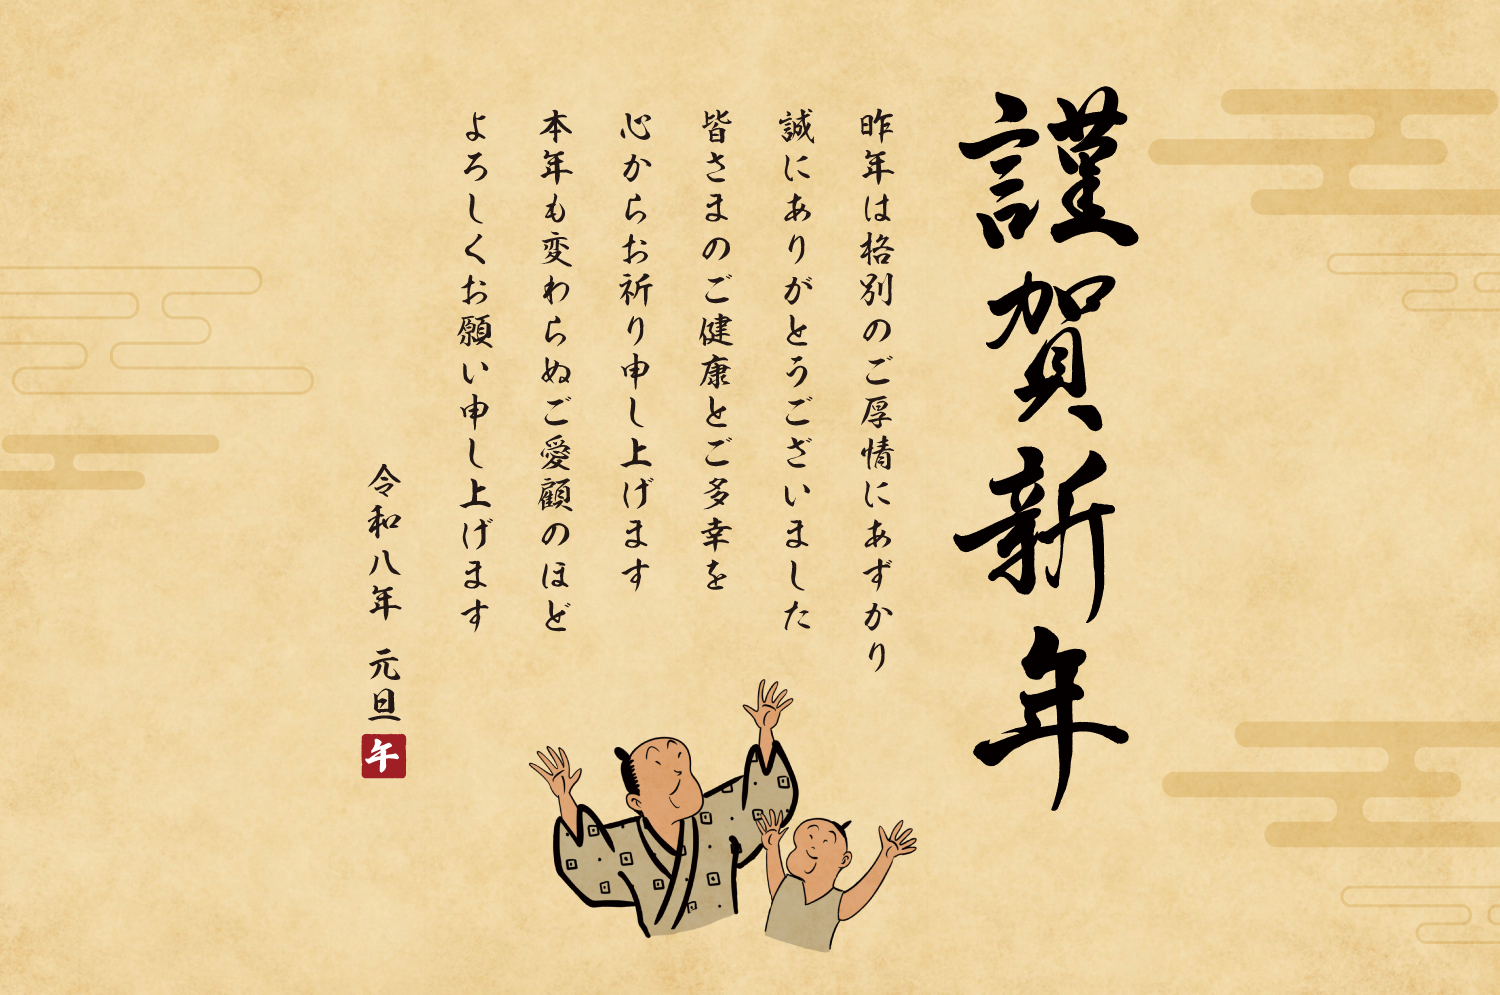 謹賀新年
昨年は格別のご厚情にあずかり
誠にありがとうございました
皆さまのご健康とご多幸を
心からお祈り申し上げます
本年も変わらぬご愛顧のほど
よろしくお願い申し上げます
令和八年 元旦
午